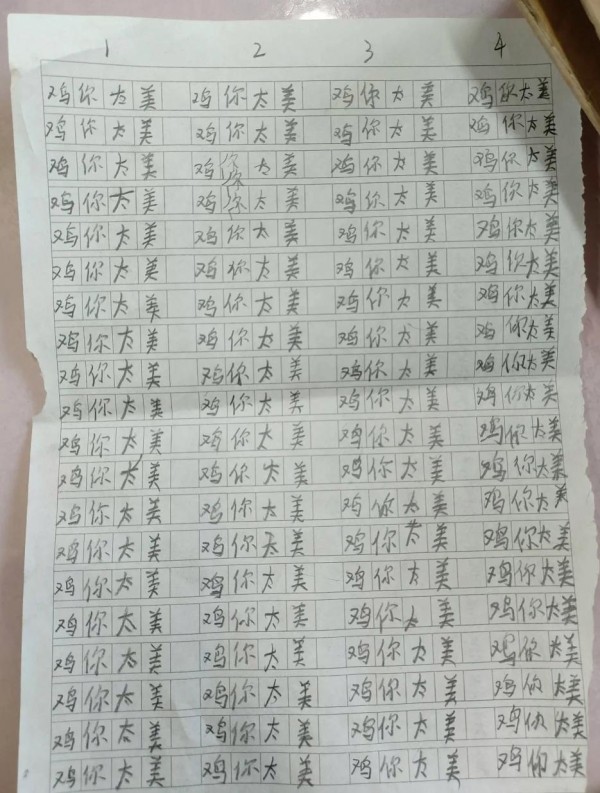 1 2 3 4
鸡你太美 鸡你太美 鸡你太美 鸡你太美
鸡你太美 鸡你太美 鸡你太美 鸡你太美
鸡你太美 鸡你太美 鸡你太美 鸡你太美
鸡你太美 鸡你太美 鸡你太美 鸡你太美
鸡你太美 鸡你太美 鸡你太美 鸡你太美
鸡你太美 鸡你太美 鸡你太美 鸡你太美
鸡你太美 鸡你太美 鸡你太美 鸡你太美
鸡你太美 鸡你太美 鸡你太美 鸡你太美
鸡你太美 鸡你太美 鸡你太美 鸡你太美
鸡你太美 鸡你太美 鸡你太美 鸡你太美
鸡你太美 鸡你太美 鸡你太美 鸡你太美
鸡你太美 鸡你太美 鸡你太美 鸡你太美
鸡你太美 鸡你太美 鸡你太美 鸡你太美
鸡你太美 鸡你太美 鸡你太美 鸡你太美
鸡你太美 鸡你太美 鸡你太美 鸡你太美
鸡你太美 鸡你太美 鸡你太美 鸡你太美
鸡你太美 鸡你太美 鸡你太美 鸡你太美
鸡你太美 鸡你太美 鸡你太美 鸡你太美
鸡你太美 鸡你太美 鸡你太美 鸡你太美
鸡你太美 鸡你太美 鸡你太美 鸡你太美